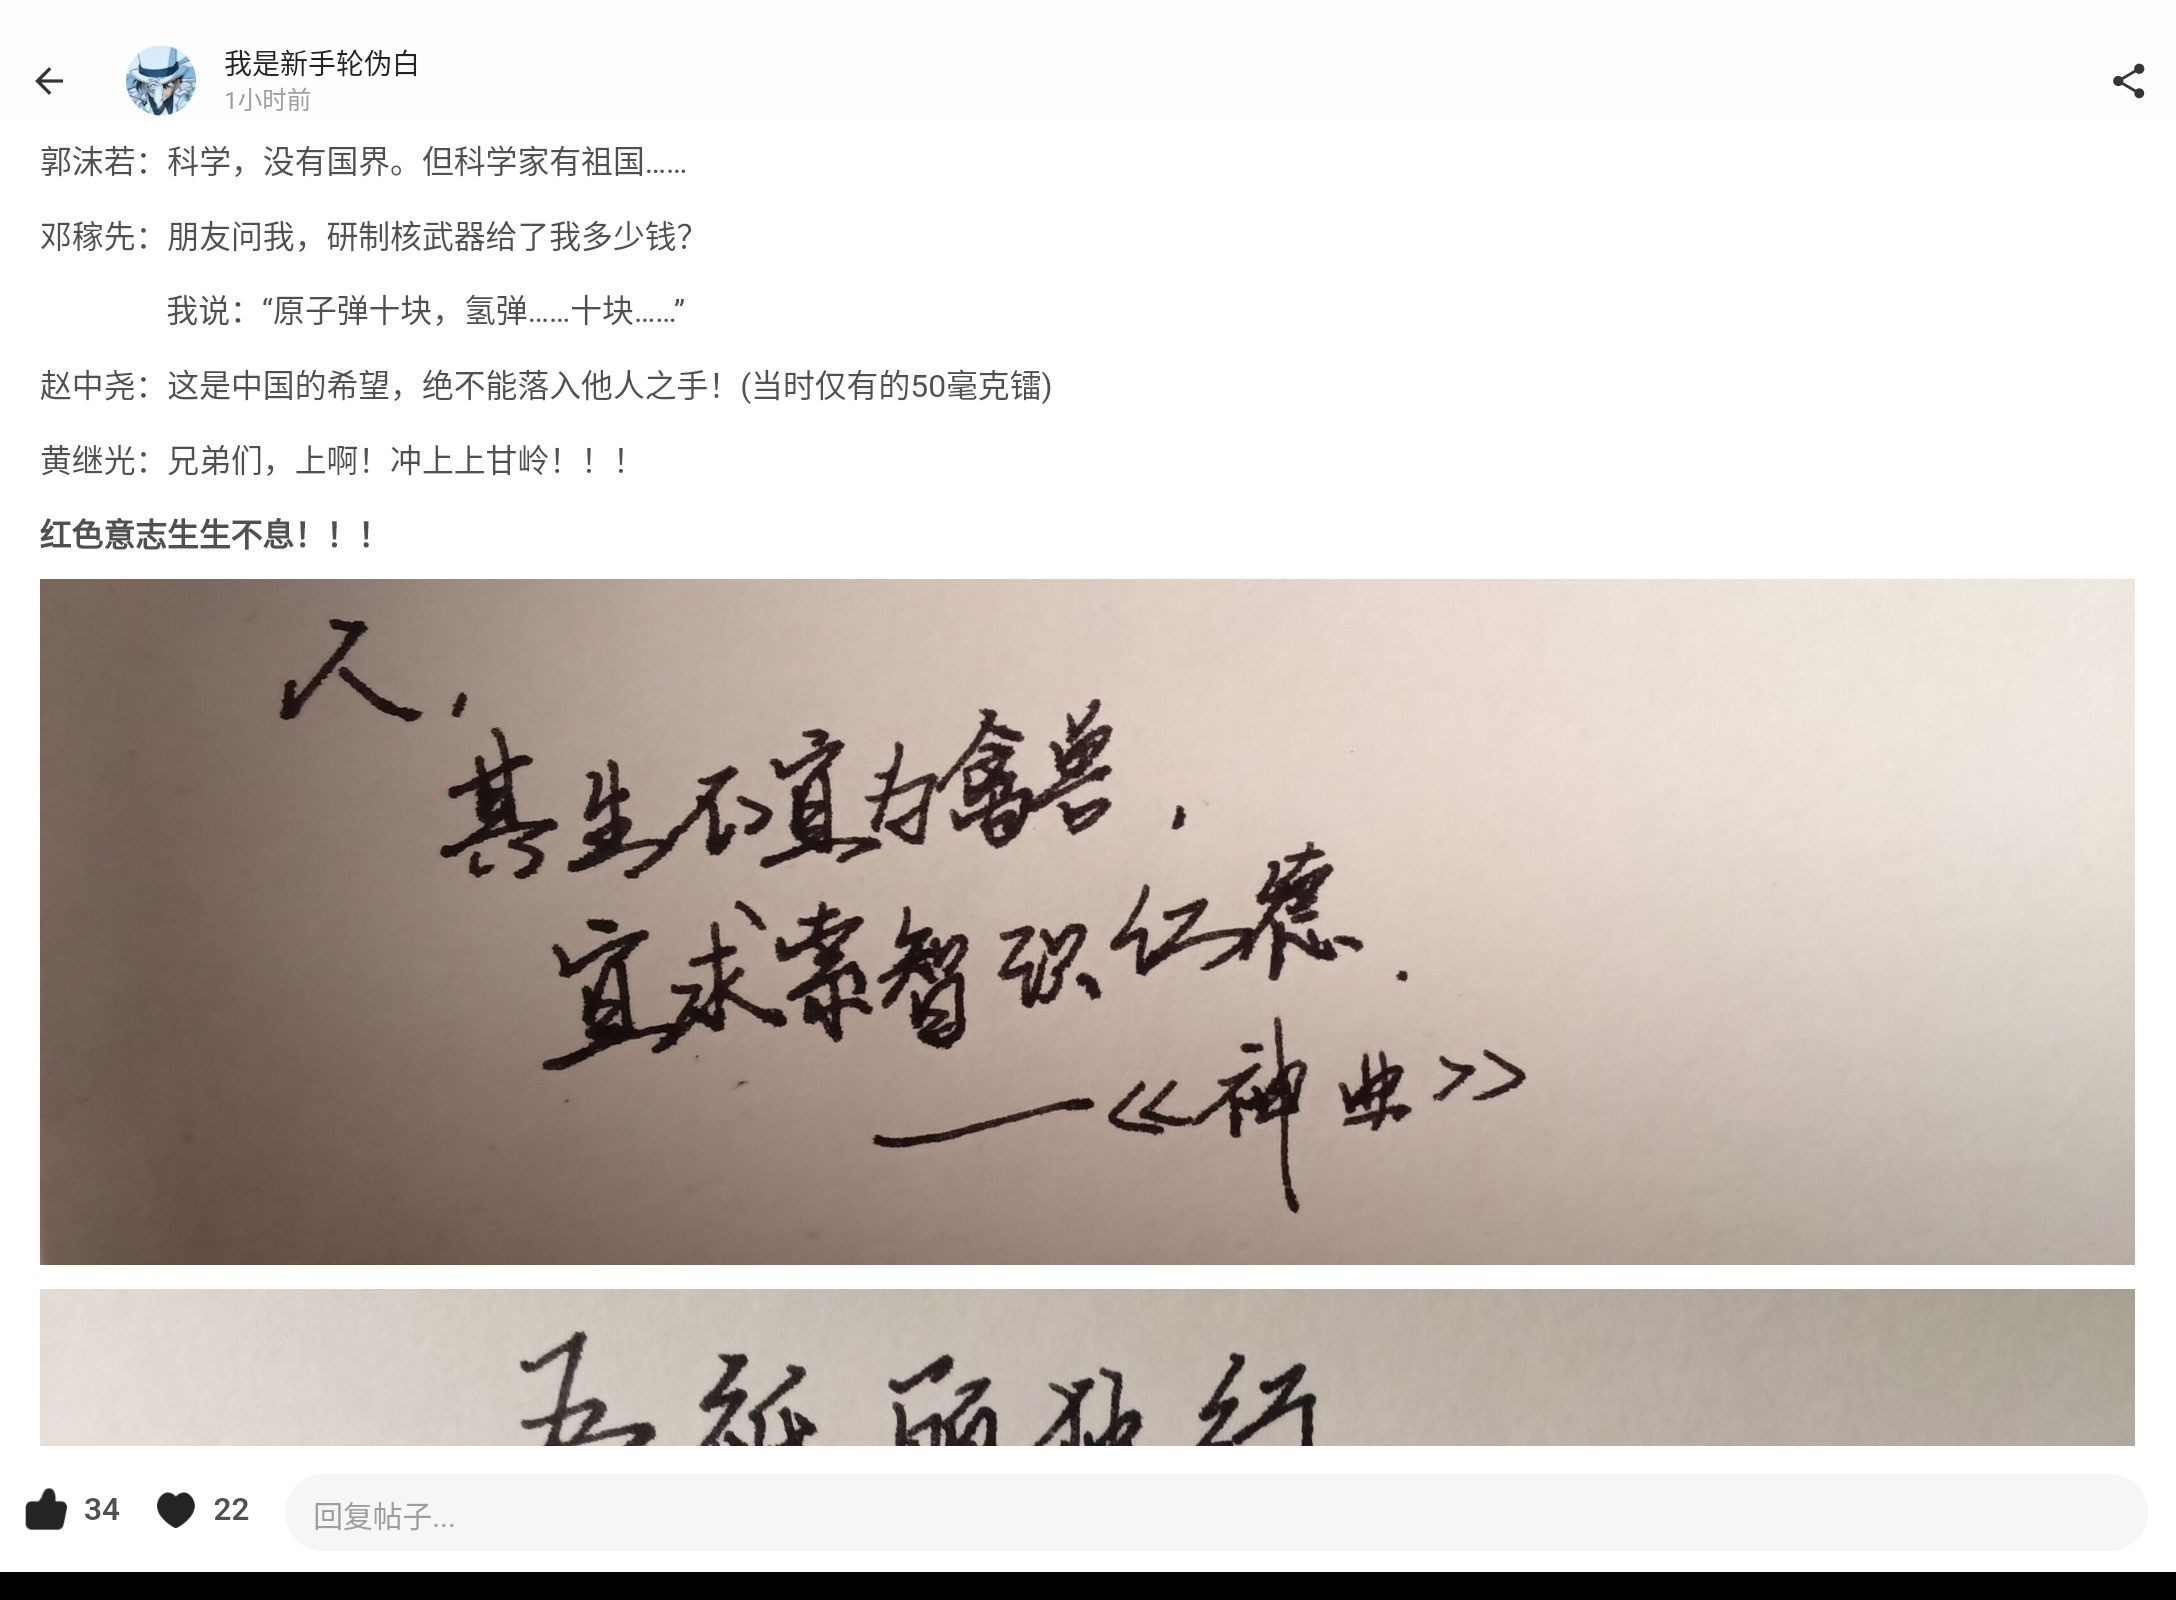 我是新手轮伪白
1小时前
郭沫若：科学，没有国界。但科学家有祖国……
邓稼先：朋友问我，研制核武器给了我多少钱？
我说：“原子弹十块，氢弹……十块……”
赵中尧：这是中国的希望，绝不能落入他人之手！(当时仅有的50毫克镭)
黄继光：兄弟们，上啊！冲上上甘岭！！！
红色意志生生不息！！！
人，
其生不宜为禽兽，
宜求索智识仁德.
—《神典》
独行
34
22
回复帖子...